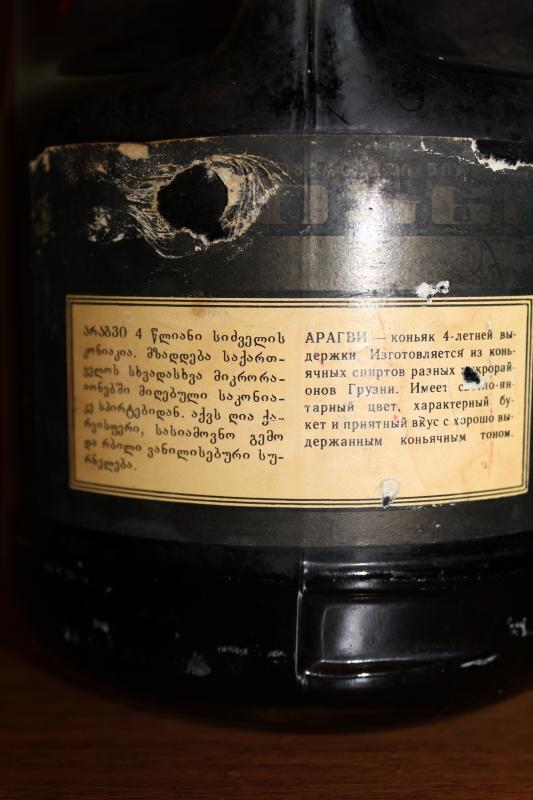 არაგვი 4 წლიანი სიძველის
კონიაკია. მზადდება საქართ-
ველოს სხვადასხვა მიკრორა-
იონებში მიღებული საკონია-
კე სპირტებიდან. აქვს ღია ქა-
რვისფერი, სასიამოვნო გემო
და რბილი ვანილისებური სუ-
რნელება.
АРАГВИ — коньяк 4-летней вы-
держки Изготовляется из конь-
ячных спиртов разных микрорай-
онов Грузии. Имеет светло-ян-
тарный цвет, характерный бу-
кет и приятный вкус с хорошо вы-
держанным коньячным тоном.